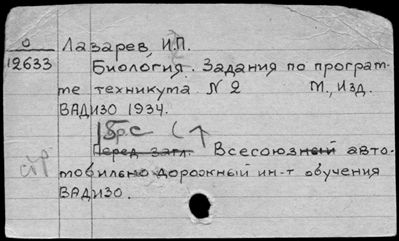 О Лазарев, И.П.
12633 Биология. Задания по програм-
ме техникута. N 2 М., Изд.
ВАДИЗО 1934.
Брс (
Перед загл. Всесоюзный авто-
мобильно дорожный ин-т обучения
ВАДИЗО.